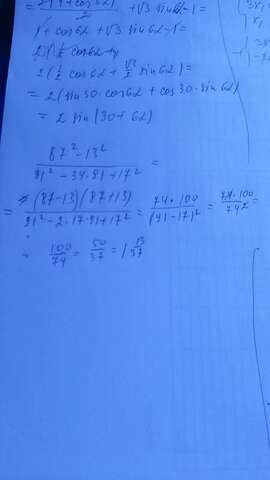 = 2(1+cos62)/2 + √3 sin62 - 1 =
1 + cos62 + √3 sin62 - 1 =
2(1/2 cos62 + √3/2 sin62) =
= 2(sin30·cos62 + cos30·sin62)
= 2 sin(30+62)
87² - 13² / 91² - 34·91 + 17² =
= (87-13)(87+13) / 91² - 2·17·91 + 17² = 74·100 / (91-17)² = 74·100 / 74² =
= 100/74 = 50/37 = 1 13/37